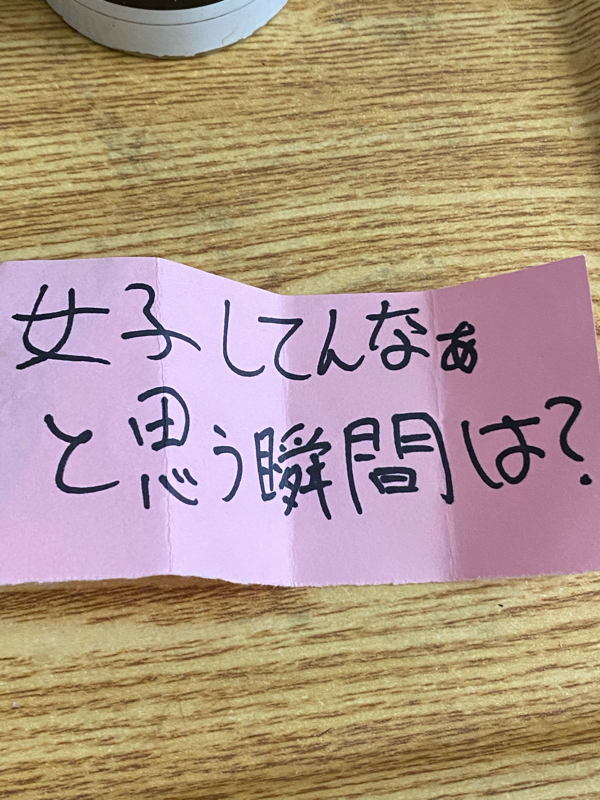 女子してんなぁ
と思う瞬間は?